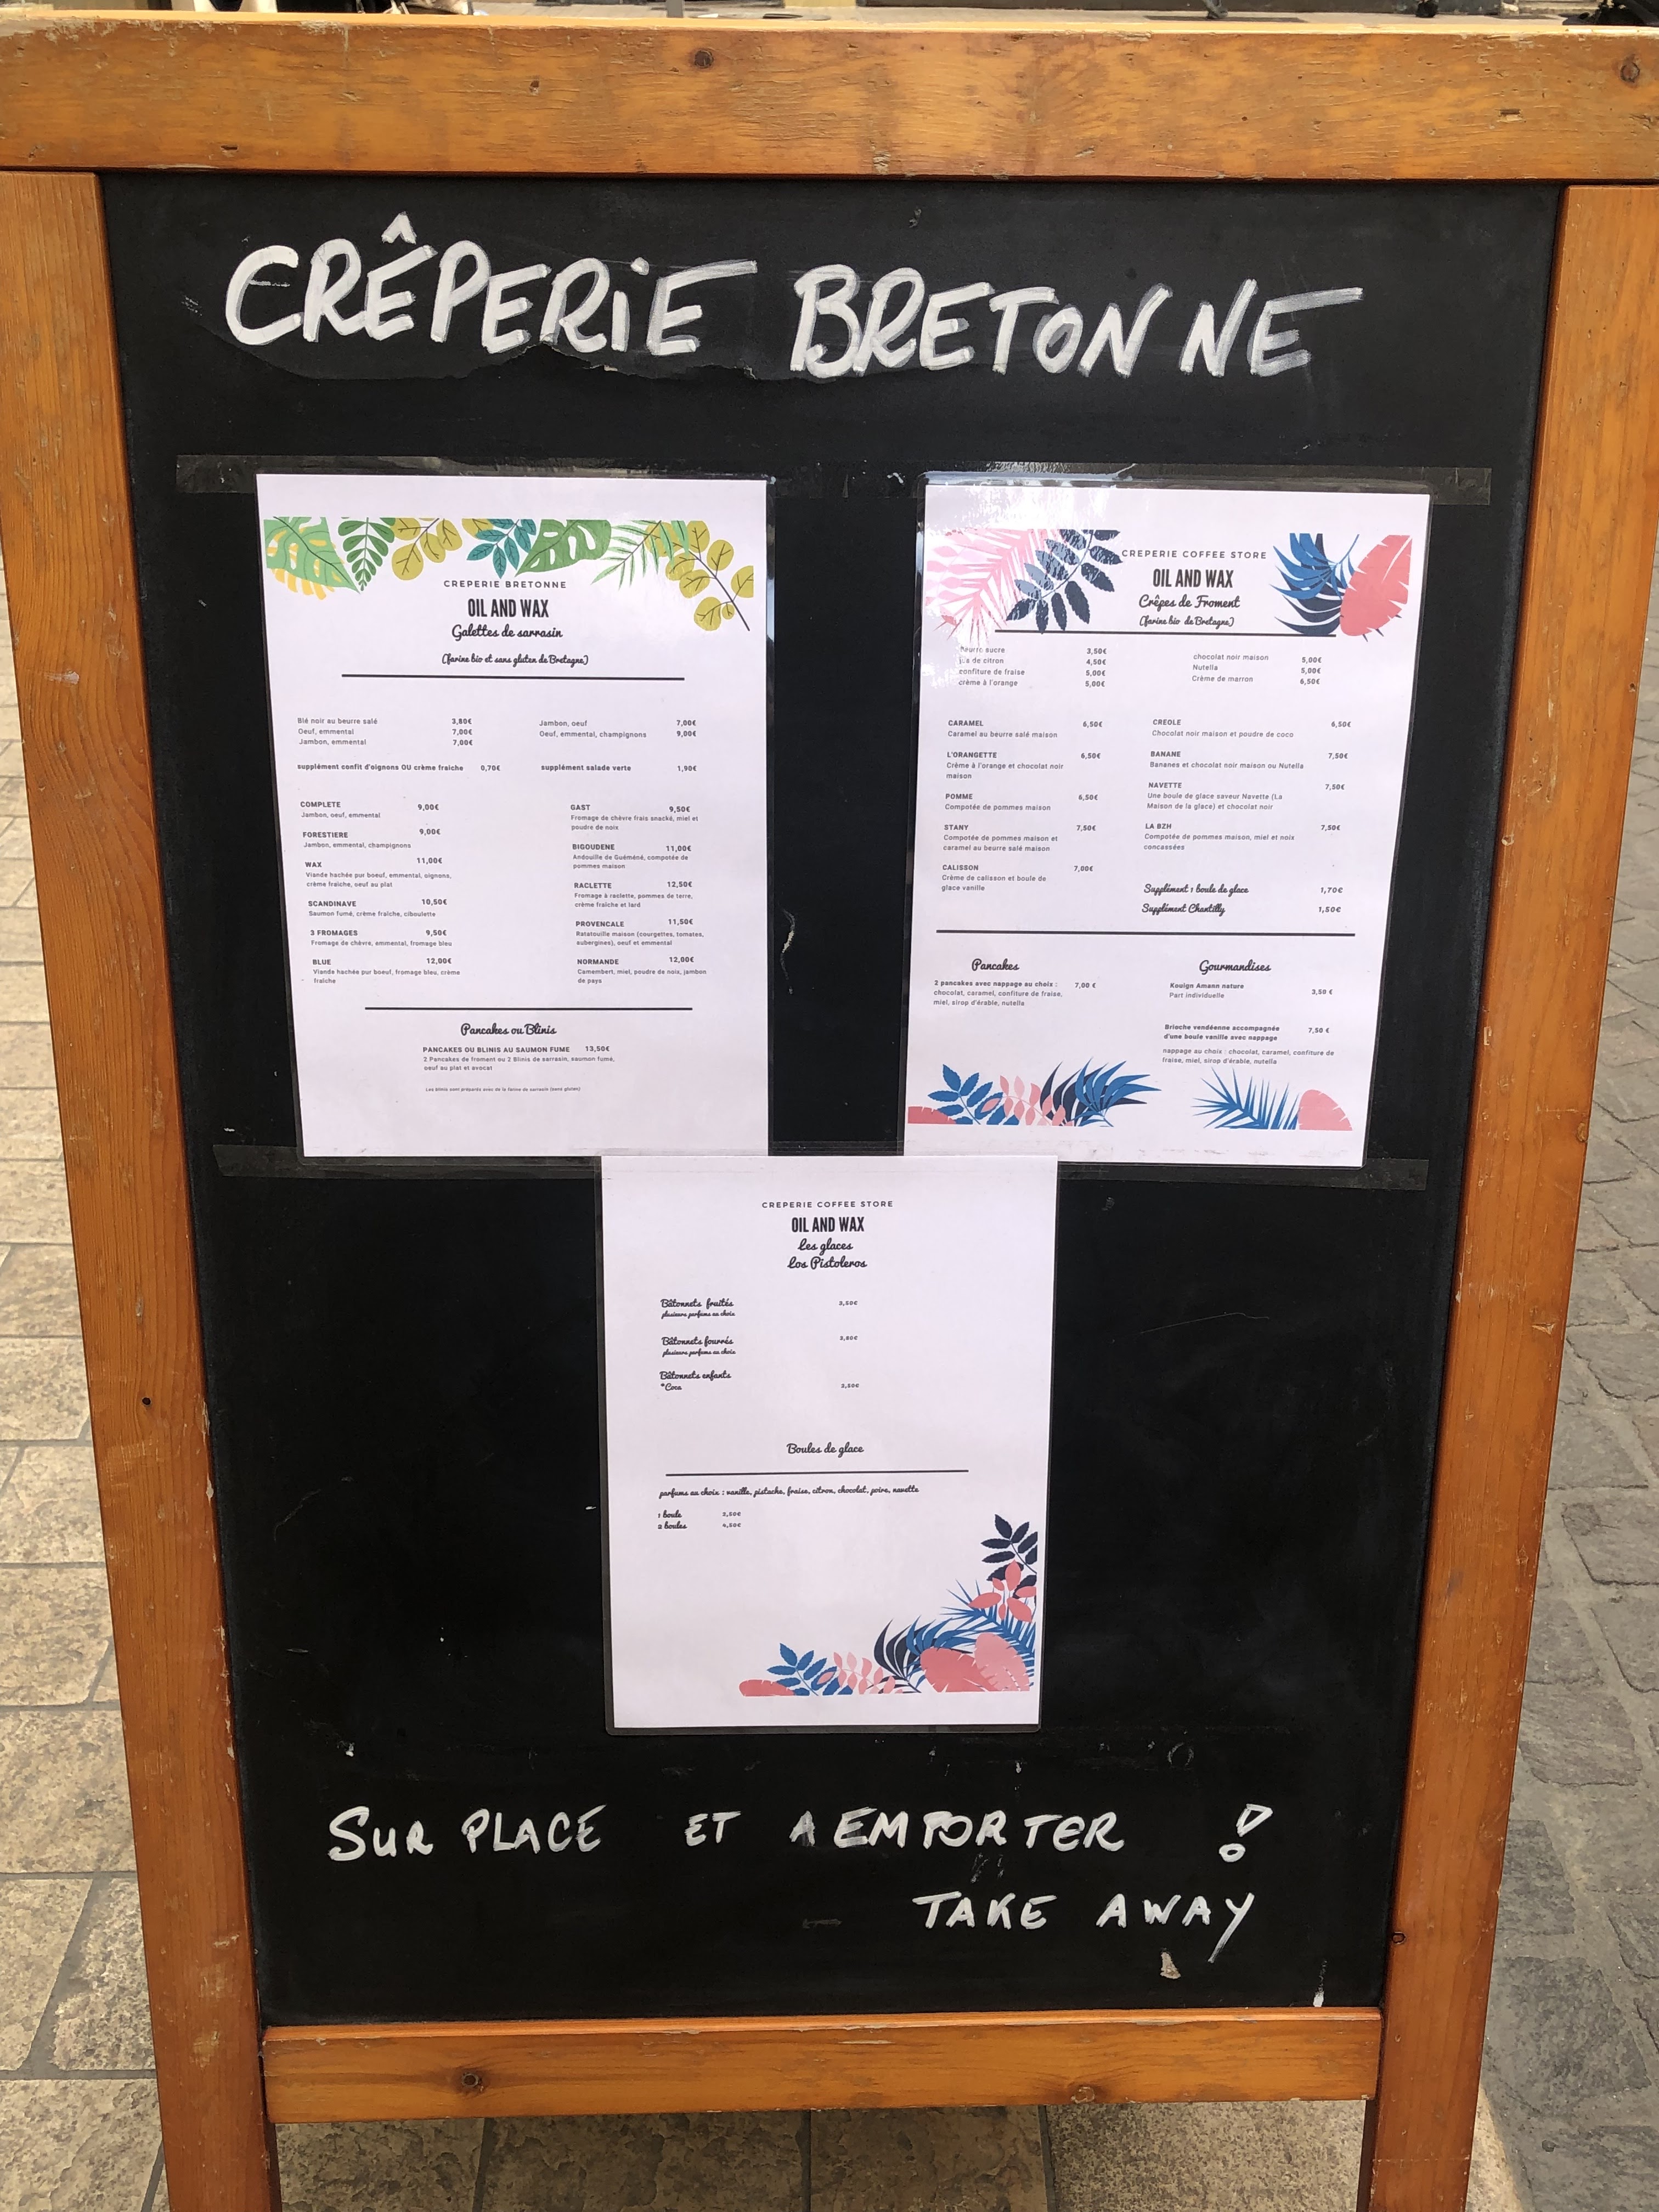 CRÊPERiE BRETONNE
CREPERIE BRETONNE
OIL AND WAX
Galettes de sarrasin
(farine bio et sans gluten de Bretagne)
Blé noir au beurre salé 3,80€
Oeuf, emmental 7,00€
Jambon, emmental 7,00€
Jambon, oeuf 7,00€
Oeuf, emmental, champignons 9,00€
supplément confit d'oignons OU crème fraiche 0,70€
supplément salade verte 1,90€
COMPLETE 9,00€
Jambon, oeuf, emmental
FORESTIERE 9,00€
Jambon, emmental, champignons
WAX 11,00€
Viande hachée pur boeuf, emmental, oignons,
crème fraîche, oeuf au plat
SCANDINAVE 10,50€
Saumon fumé, crème fraîche, ciboulette
3 FROMAGES 9,50€
Fromage de chèvre, emmental, fromage bleu
BLUE 12,00€
Viande hachée pur boeuf, fromage bleu, crème
fraîche
GAST 9,50€
Fromage de chèvre frais snacké, miel et
poudre de noix
BIGOUDENE 11,00€
Andouille de Guéméné, compotée de
pommes maison
RACLETTE 12,50€
Fromage à raclette, pommes de terre,
crème fraîche et lard
PROVENCALE 11,50€
Ratatouille maison (courgettes, tomates,
aubergines), oeuf et emmental
NORMANDE 12,00€
Camembert, miel, poudre de noix, jambon
de pays
Pancakes ou Blinis
PANCAKES OU BLINIS AU SAUMON FUME 13,50€
2 Pancakes de froment ou 2 Blinis de sarrasin, saumon fumé,
oeuf au plat et avocat
Les blinis sont préparés avec de la farine de sarrasin (sans gluten)
CREPERIE COFFEE STORE
OIL AND WAX
Crêpes de Froment
(farine bio de Bretagne)
Beurre sucre 3,50€
jus de citron 4,50€
confiture de fraise 5,00€
crème à l'orange 5,00€
chocolat noir maison 5,00€
Nutella 5,00€
Crème de marron 6,50€
CARAMEL 6,50€
Caramel au beurre salé maison
L'ORANGETTE 6,50€
Crème à l'orange et chocolat noir
maison
POMME 6,50€
Compotée de pommes maison
STANY 7,50€
Compotée de pommes maison et
caramel au beurre salé maison
CALISSON 7,00€
Crème de calisson et boule de
glace vanille
CREOLE 6,50€
Chocolat noir maison et poudre de coco
BANANE 7,50€
Bananes et chocolat noir maison ou Nutella
NAVETTE 7,50€
Une boule de glace saveur Navette (La
Maison de la glace) et chocolat noir
LA BZH 7,50€
Compotée de pommes maison, miel et noix
concassées
Supplément 1 boule de glace 1,70€
Supplément Chantilly 1,50€
Pancakes
2 pancakes avec nappage au choix : 7,00 €
chocolat, caramel, confiture de fraise,
miel, sirop d'érable, nutella
Gourmandises
Kouign Amann nature
Part individuelle 3,50 €
Brioche vendéenne accompagnée 7,50 €
d'une boule vanille avec nappage
nappage au choix : chocolat, caramel, confiture de
fraise, miel, sirop d'érable, nutella
CREPERIE COFFEE STORE
OIL AND WAX
Les glaces
Los Pistoleros
Bâtonnets fruités
plusieurs parfums au choix
Bâtonnets fourrés
plusieurs parfums au choix
Bâtonnets enfants
*Coco 2,50€
Boules de glace
parfums au choix : vanille, pistache, fraise, citron, chocolat, poire, navette
1 boule 2,50€
2 boules 4,50€
SUR PLACE ET A EMPORTER !
TAKE AWAY